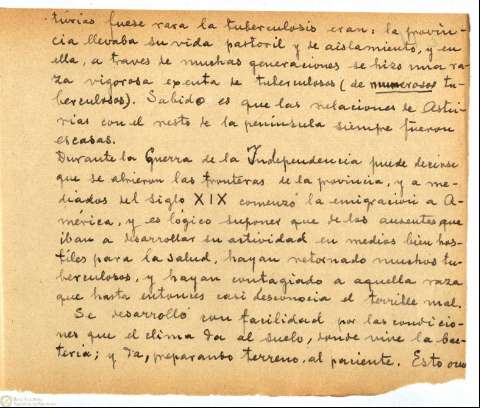 turias fuese rara la tuberculosis eran: la provin-
cia llevaba su vida pastoril y de aislamiento, y en
ella, a traves de muchas generaciones se hizo una ra-
za vigorosa exenta de tuberculosos (de numerosos tu-
berculosos). Sabido es que las relaciones de Astu-
rias con el resto de la península siempre fueron
escasas.
Durante la Guerra de la Independencia puede decirse
que se abrieron las fronteras de la provincia, y a me-
diados del siglo XIX comenzó la emigración a A-
mérica, y es lógico suponer que de los ausentes que
iban a desarrollar su actividad en medios bien hos-
tiles para la salud, hayan retornado muchos tu-
berculosos, y hayan contagiado a aquella raza
que hasta entonces casi desconocia el terrible mal.
Se desarrolló con facilidad por las condicio-
nes que el clima da al suelo, donde vive la bac-
teria; y da, preparando terreno, al paciente. Esto